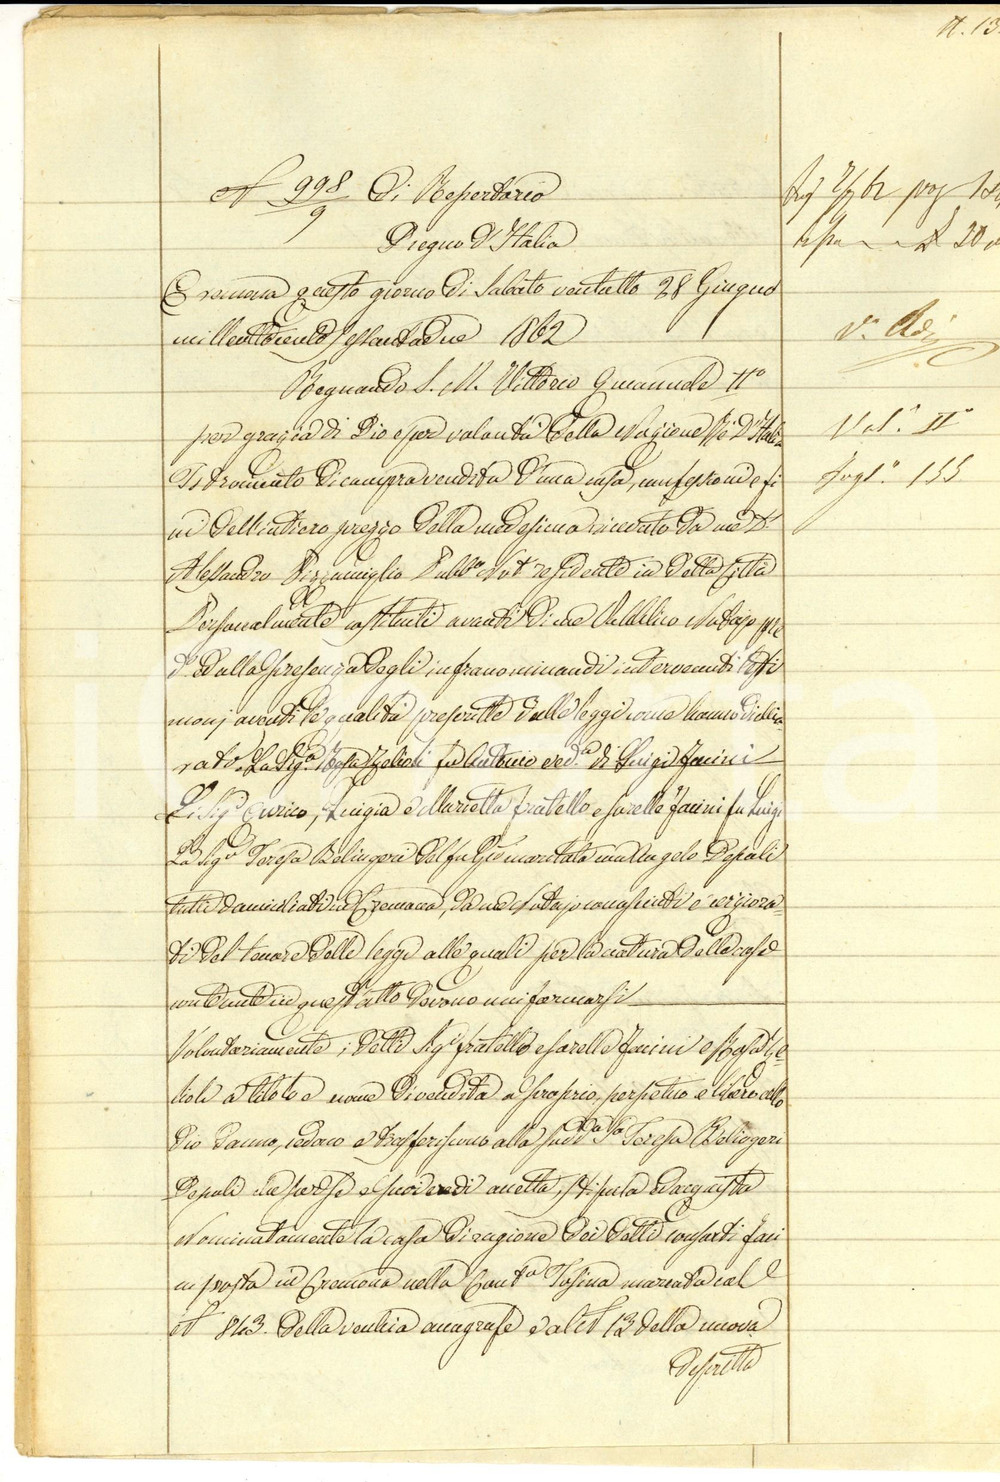 N. 13
N 998/9 Di Repertorio
Regno d'Italia
Cremona questo giorno di Sabato ventotto 28 Giugno
milleottocento sessantadue 1862
Regnando S. M. Vittorio Emanuele IIº
per grazia di Dio e per volontà della Nazione Re d'Italia
Istromento di compravendita d'una casa, confessioni e fi
ni dell'intiero prezzo della medesima ricevuto da me Dr
Alessandro Pubbº Notº residente in detta Città
Personalmente costituiti avanti di me Pubblico Notajo pre
dº ed alla presenza degli infranominandi intervenuti testi
monj aventi le qualità prescritte dalle leggi come hanno dichia-
rato. La Sigª Rosa Zelioli fu Antonio vedª di Luigi Jacini
Li Sigⁱ Enrico, Luigia e Marietta fratello e sorelle Jacini fu Luigi
La Sigª Teresa Belingeri del fu maritata in Angelo Depoli
tutti domiciliati in Cremona, da me Notajo conosciuti e cerziora-
ti del tenore delle leggi alle quali per la natura delle cose
contenute in quest'atto devono uniformarsi
Volontariamente i detti Sigⁱ fratello e sorelle Jacini e Rosa Ze-
lioli a titolo e nome di vendita a proprio, perpetuo e libero allo
dio danno, cedono e trasferiscono alla sudda Sa Teresa Belingeri
Depoli che per se e suoi eredi accetta, stipula ed acquista
Nominatamente la casa di ragione dei detti consorti Jaci
ni posta in Cremona nella Contª Tofina marcata col
Nº 843. della vecchia anagrafe e al Nº 13 della nuova
descritta
Vº
Volº IIº
foglº 155